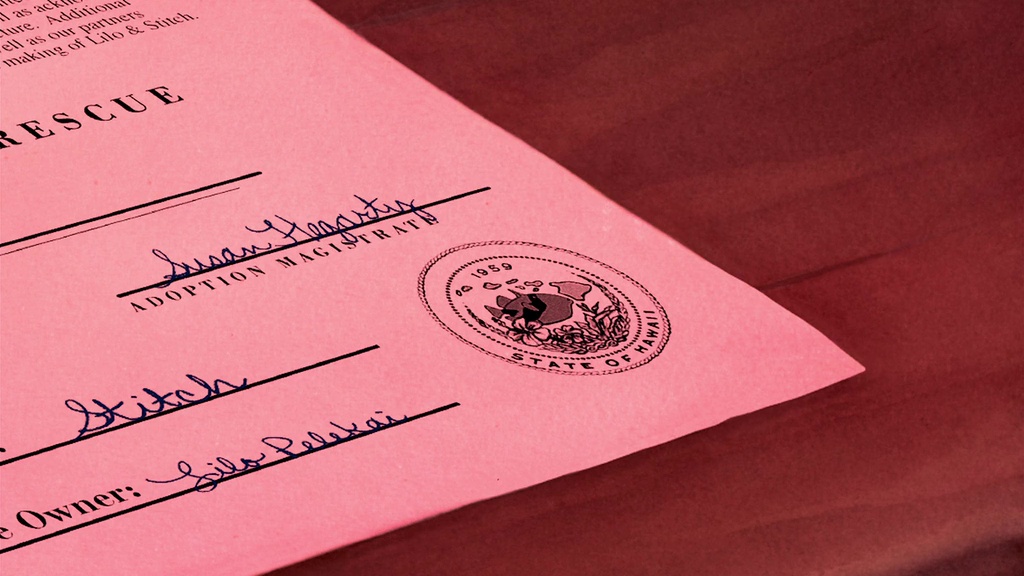 as ackno
ture. Additional
ell as our partners
making of Lilo & Stitch.
RESCUE
Susan Hegarty
ADOPTION MAGISTRATE
1959
STATE OF HAWAII
Stitch
e Owner: Lilo Pelekai